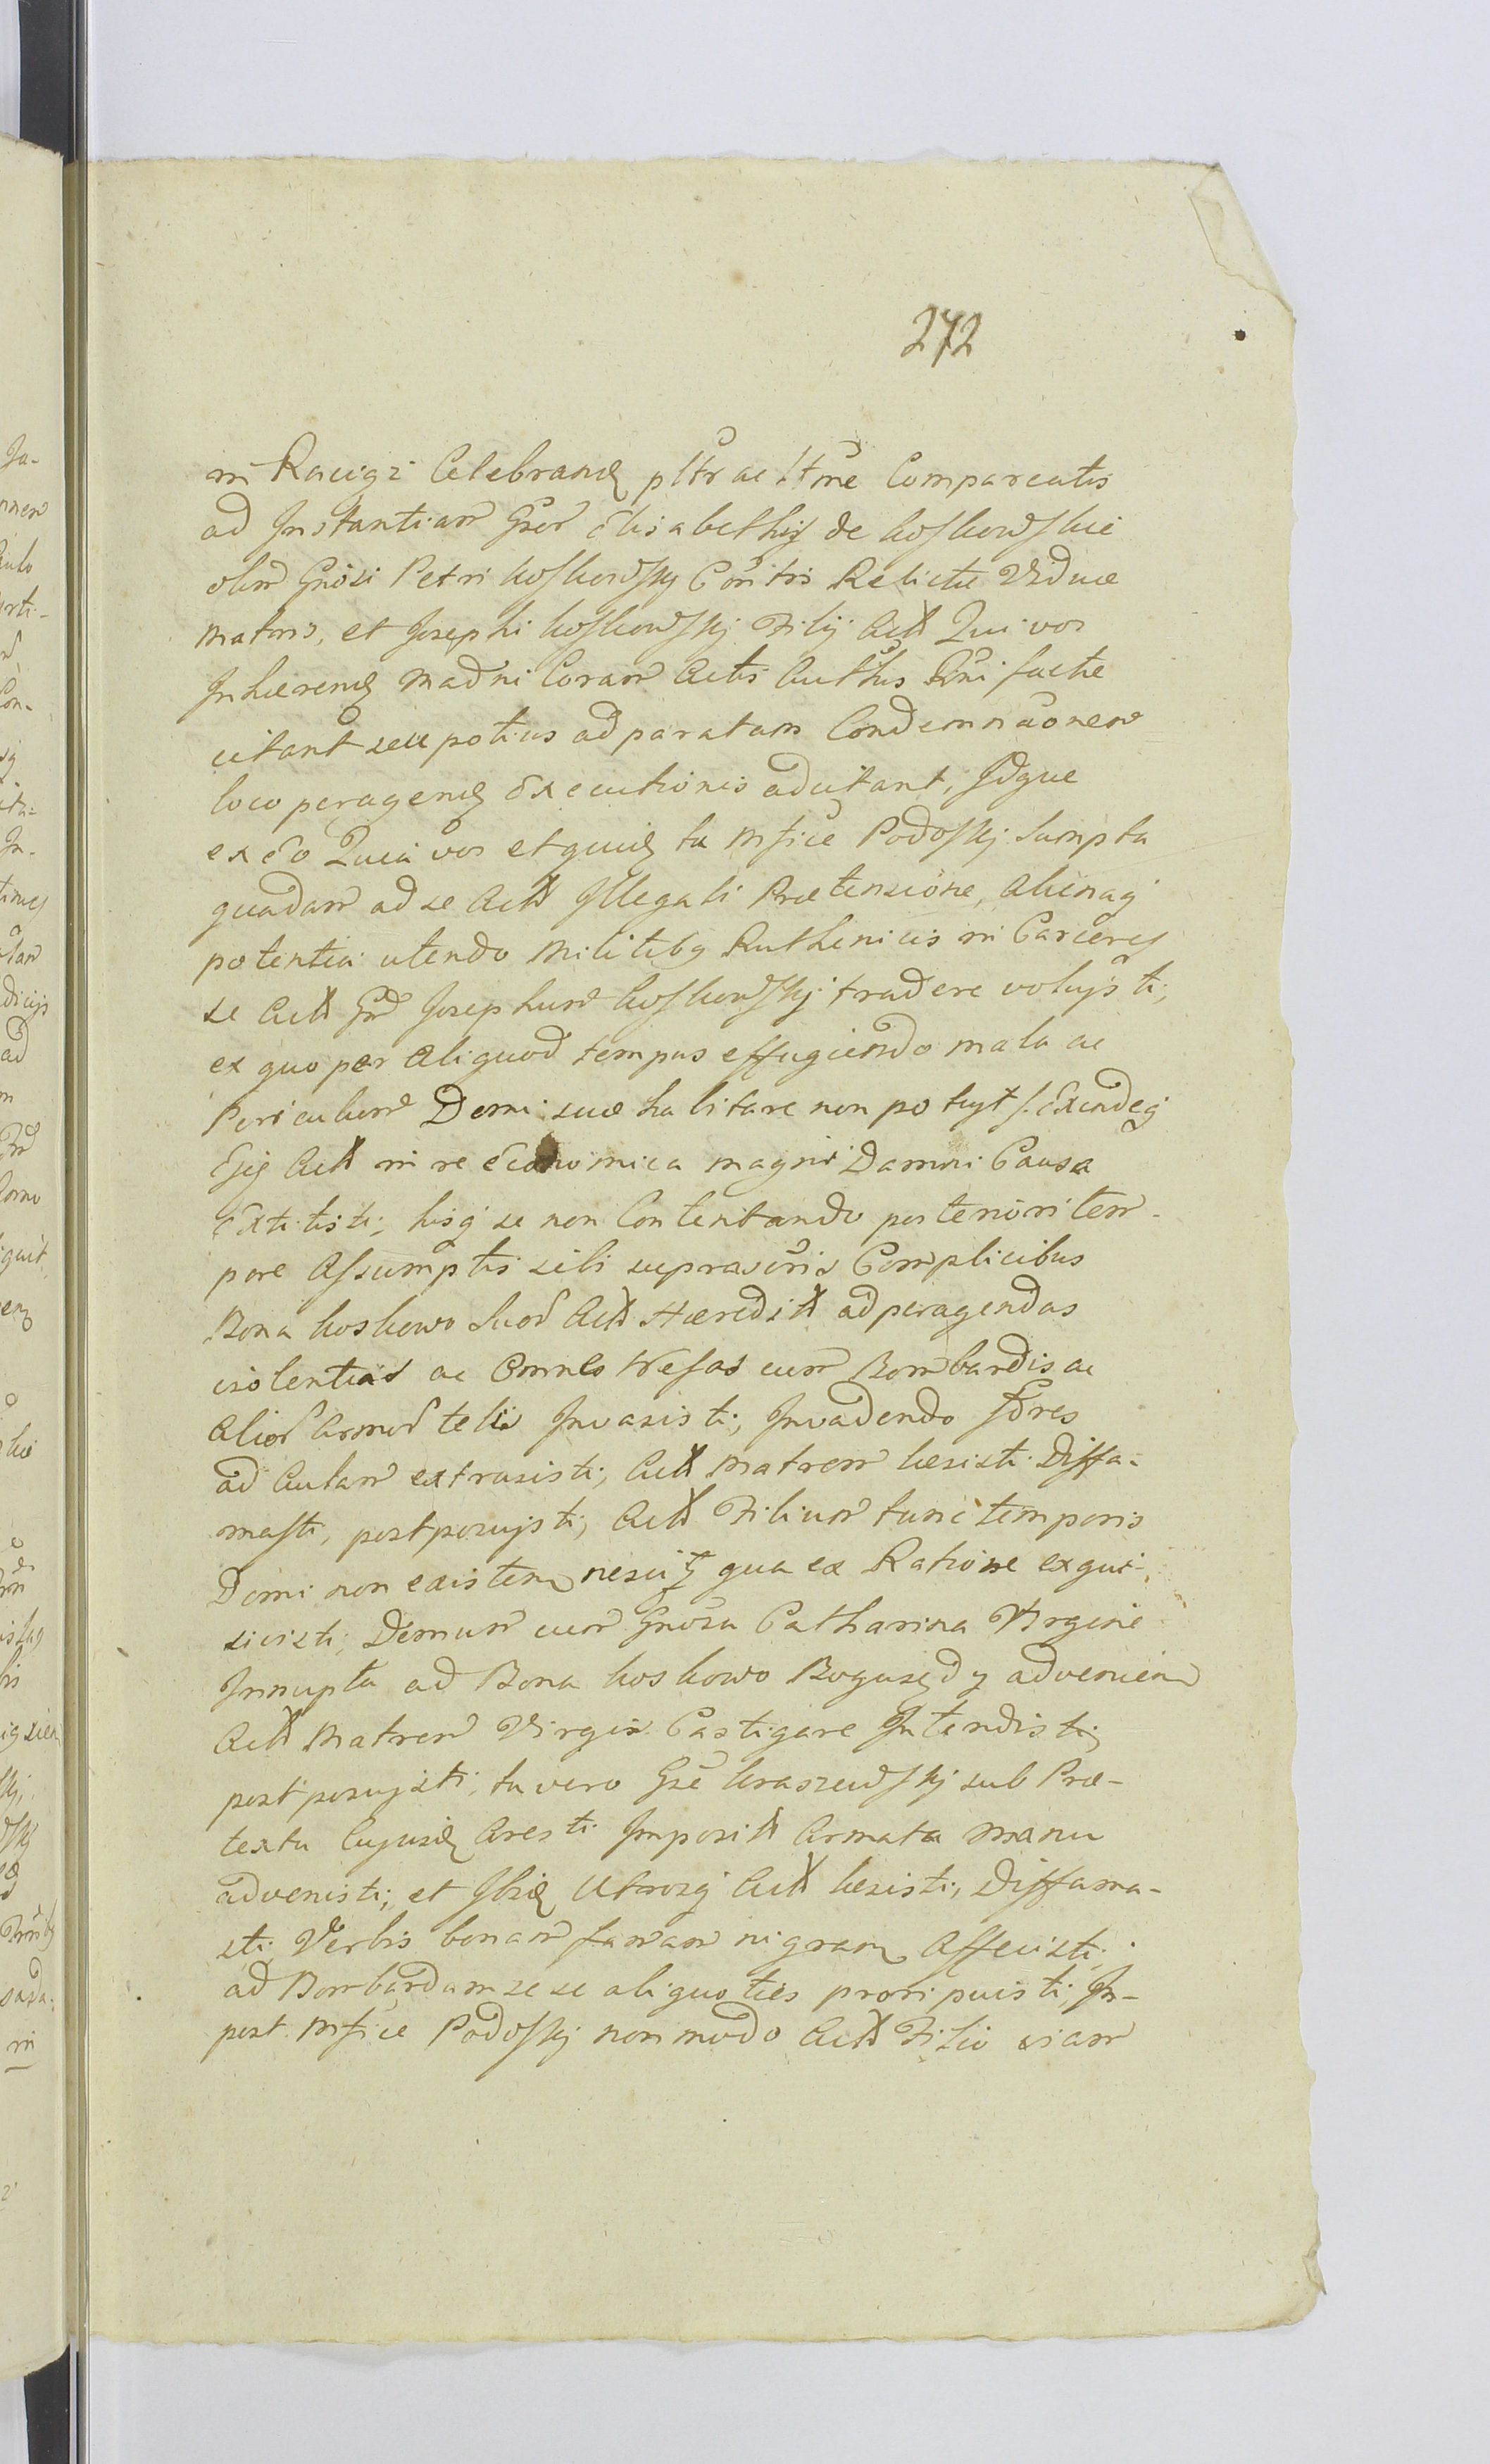 272
in Raciąż Celebrand pltr ac ltme Compareatis
ad Instantiam Gsor Elisabethy de Koskowskie
olim Gnosi Petri Koskowsky Contis Relictæ Viduæ
Matris, et Josephi Koskowskj Filij Actt Qui vos
Inhærend Mad ni Coram Actis Authis facte
citant seu potius ad paratam Condemnaonem
loco peragend Executionis adcitant, Idque
ex eo Quia vos et quid tu Mfice Podoskj Sumpta
quadam ad se Actt Illegali Prætensione, alienaq
potentia utendo Militibq Ruthenicis in Carceres
se Actt Gd Josephum Koskowskj tradere volujsti,
ex quo per aliquod tempus effugiendo mala ac
Periculum Domi suæ habitare non potuyt, Exindeq
Ejq Actt in re Economica magni Damni Causa
Extitisti, hisq se non Contentando posteriori tem-
pore Assumptis sibi suprascris Complicibus
Bona Koskowo Suor Actt Hæredit ad peragendas
violentias ac Omnes Nefas cum Bombardis ac
alior armor telis Invasisti, Invadendo fres
ad Aulam extraxisti, Actt Matrem læsisti Diffa-
masti, postposujsti, Actt Filium tunc temporis
Domi non existen nescitq qua ex Ratione exqui-
sivisti, Demum cum Gnosa Catharina Virgine
Innupta ad Bona Koskowo Boguszędy advenien
Actt Matrem Virgis Castigare Intendisti,
postposujsti, tu vero Gse Kraszewskj sub Præ-
textu Cujusd Aresti Imposit Armata Manu
advenisti, et Ibid Utrosq Actt læsisti, Diffama-
sti, Verbis bonam famam nigram Affecisti,
ad Bombardam se se aliquoties proripuisti, In-
post Mfice Podoskj non modo Actt Filio viam